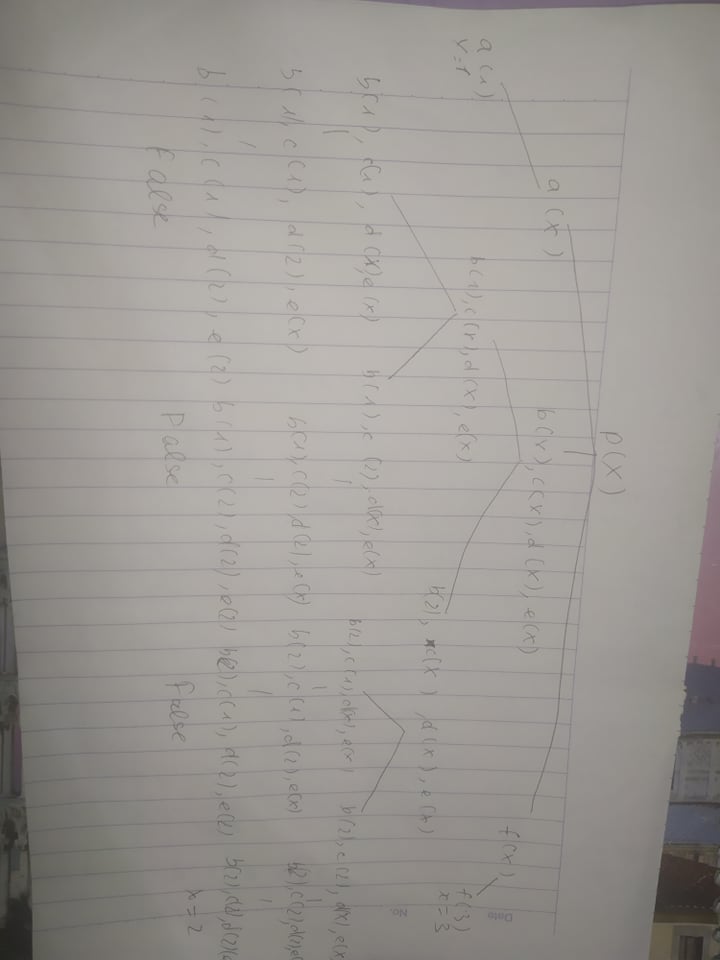 p(X)
a (X)
b(X), c(X), d(X), e(X)
f(X)
a(1)
X=1
b(1), c(X), d(X), e(X)
f(3)
x=3
b(2), c(X) , d(X), e(X)
b(1), c(1), d(X), e(X)
b(1), c(2), d(X), e(X)
b(2), c(1), d(X), e(X)
b(2), c(2), d(X), e(X
b(1), c(1), d(2), e(X)
b(1), c(2), d(2), e(X)
b(2), c(1), d(2), e(X)
b(2), c(2), d(2), e(
b(1), c(1), d(2), e(2)
b(1), c(2), d(2), e(2)
b(2), c(1), d(2), e(2)
x=2
False
False
False
Date
No.